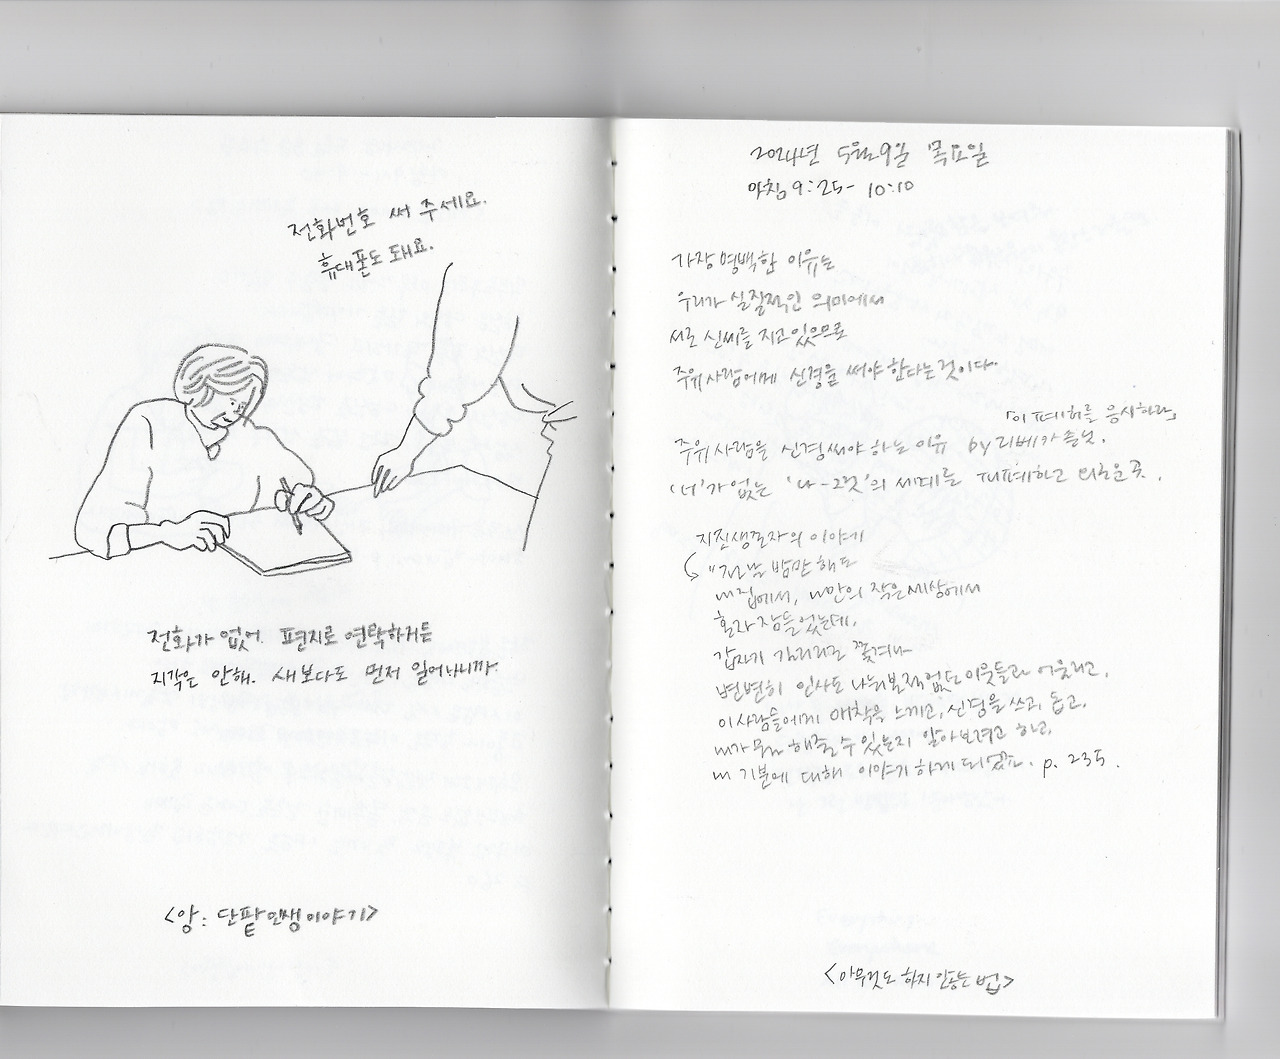 전화번호 써 주세요.
휴대폰도 돼요.
전화가 없어. 편지로 연락하거든
지각은 안해. 새보다도 먼저 일어나니까.
<앙: 단팥 인생 이야기>
2024년 5월 9일 목요일
아침 9:25- 10:10
가장 명백한 이유는
우리가 실질적인 의미에서
서로 신세를 지고 있으므로
주위 사람에게 신경을 써야 한다는 것이다.
「이 폐허를 응시하라」
주위 사람을 신경써야 하는 이유 by 리베카 솔닛.
'너'가 없는 '나-그것'의 세계를 하고 외로운 곳.
지진생존자의 이야기
"전날 밤만 해도
내 집에서, 나만의 작은 세상에서
홀로 잠들었는데,
갑자기 길거리로 쫓겨나
변변히 인사도 나눠본적 없던 이웃들과 어울리고,
이 사람들에게 애착을 느끼고, 신경을 쓰고 돕고,
내가 뭘 해줄 수 있는지 알아보려고 하고,
내 기분에 대해 이야기 하게 되었다. p. 235.
<아무것도 하지 않는 법>